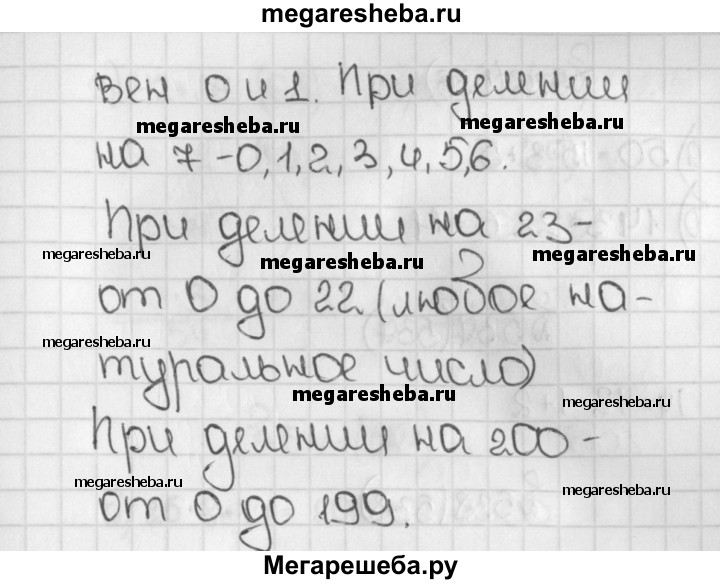 megaresheba.ru
вен 0 и 1. При делении
megaresheba.ru megaresheba.ru
на 7 - 0, 1, 2, 3, 4, 5, 6.
При делении на 23 -
megaresheba.ru megaresheba.ru megaresheba.ru
от 0 до 22 (любое на-
megaresheba.ru
туральное число)
megaresheba.ru megaresheba.ru
При делении на 200 -
megaresheba.ru megaresheba.ru
от 0 до 199.
Мегарешеба.ру